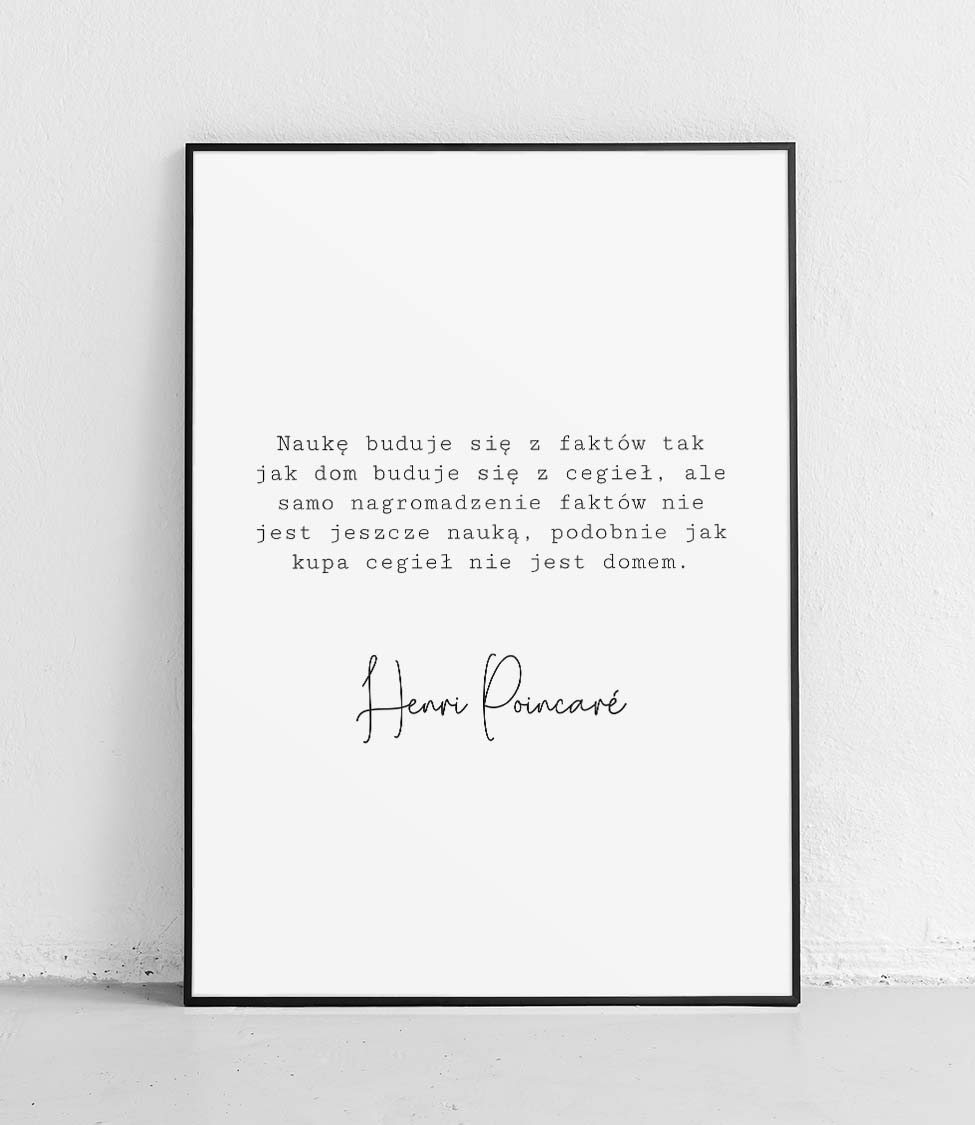 Naukę buduje się z faktów tak
jak dom buduje się z cegieł, ale
samo nagromadzenie faktów nie
jest jeszcze nauką, podobnie jak
kupa cegieł nie jest domem.
Henri Poincaré